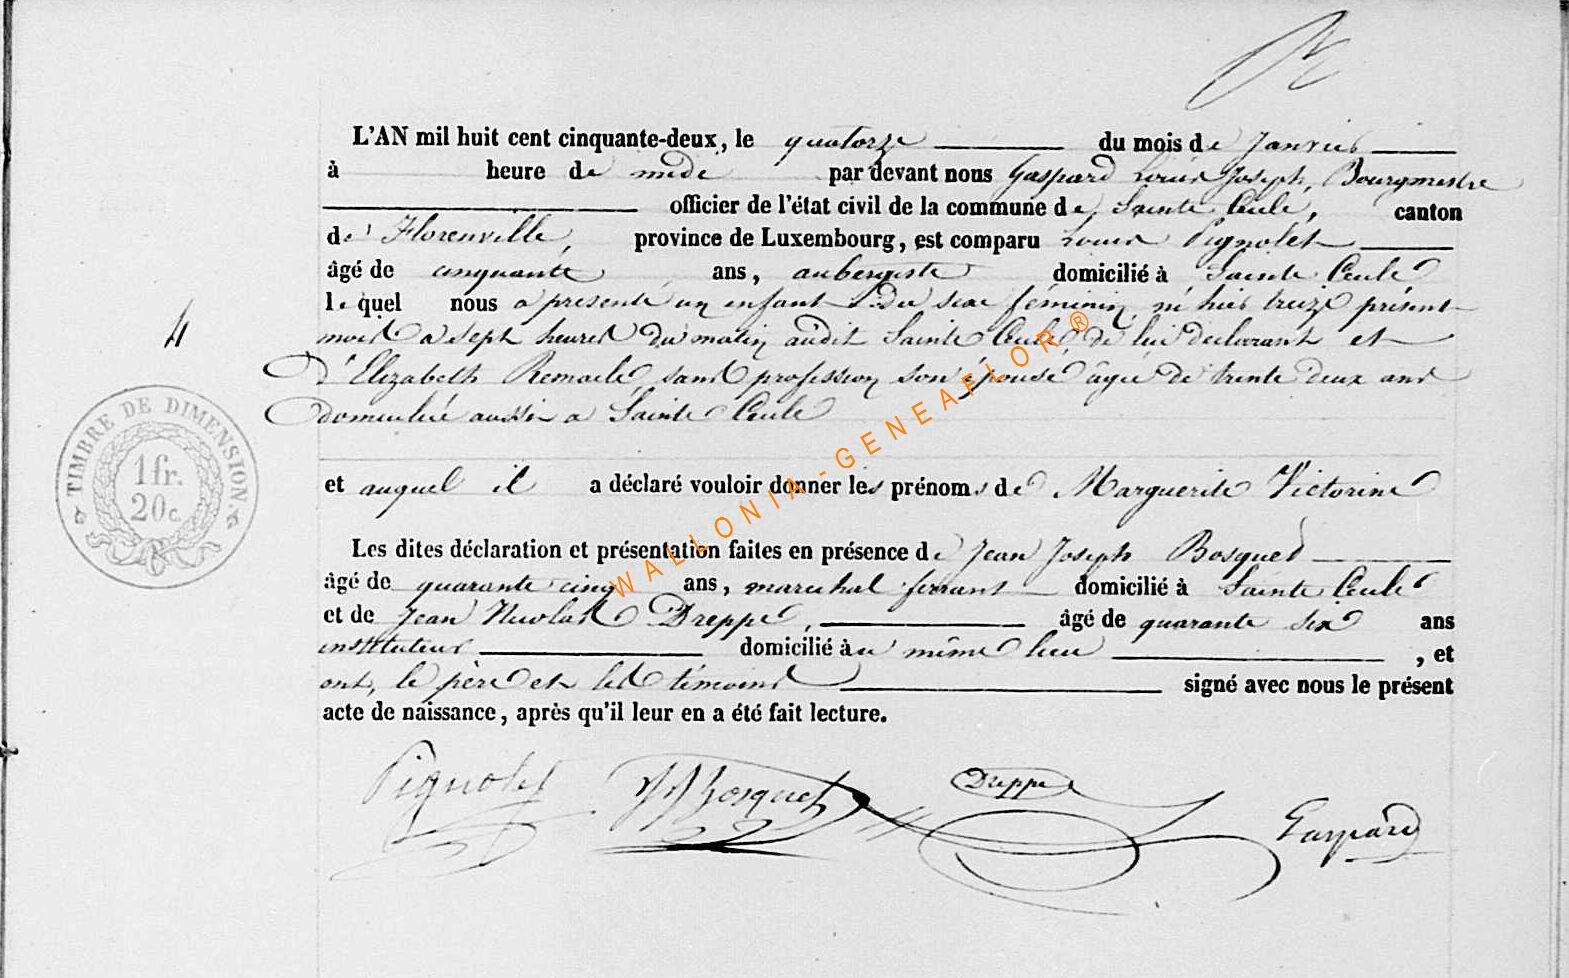 L'AN mil huit cent cinquante-deux, le quatorze du mois de Janvier
à heure de midi par devant nous Gaspard Louis Joseph, Bourgmestre
officier de l'état civil de la commune de Sainte Cécile, canton
de Florenville, province de Luxembourg, est comparu Louis Pignolet
âgé de cinquante ans, aubergiste domicilié à Sainte Cécile
lequel nous a présenté un enfant du sexe féminin, né hier treize présent
mois a sept heures du matin audit Sainte Cécile, de lui déclarant et
d'Elizabeth Remacle, sans profession son épouse, âgée de trente deux ans
domiciliée aussi a Sainte Cécile
et auquel il a déclaré vouloir donner les prénoms de Marguerite Victorine
Les dites déclaration et présentation faites en présence de Jean Joseph Bosquet
âgé de quarante cinq ans, marechal ferrant domicilié à Sainte Cécile
et de Jean Nicolas Dreppe, âgé de quarante six ans
instituteur domicilié au même lieu, et
ont, le père et les témoins signé avec nous le présent
acte de naissance, après qu'il leur en a été fait lecture.
4
TIMBRE DE DIMENSION.
1 fr.
20 c.
WALLONIA-GENEAFLOR ®
Pignolet JJ Bosquet Dreppe Gaspard